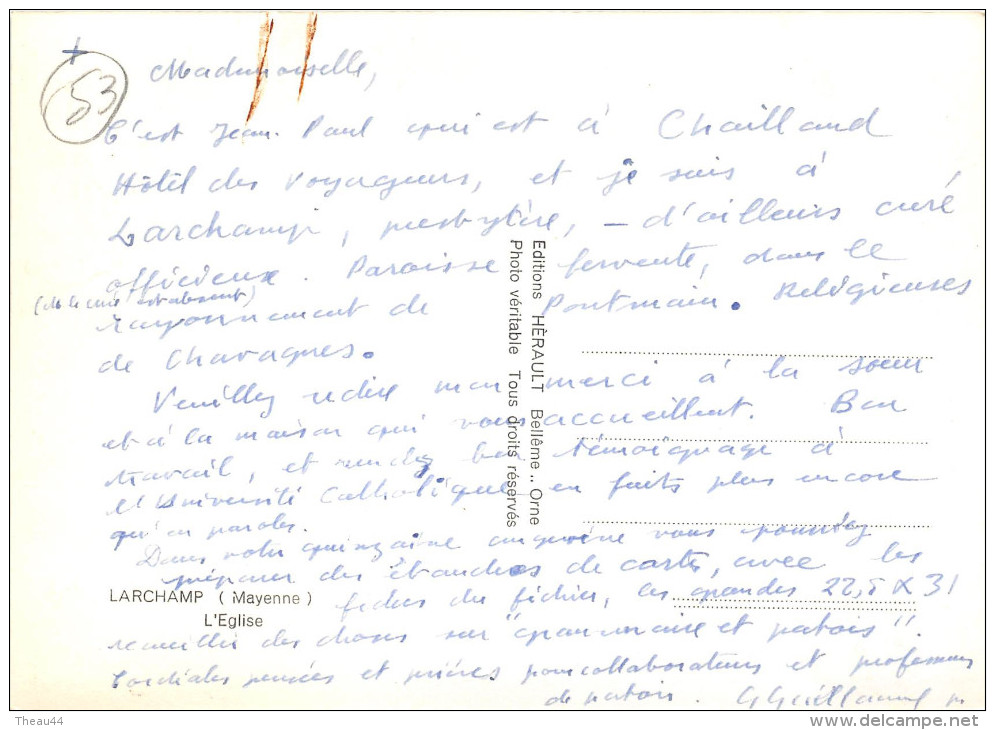 53
Mademoiselle,
C'est Jean-Paul qui est à Chailland
Hôtel des Voyageurs, et je suis à
Larchamp, presbytère, – d'ailleurs curé
officieux. Paroisse fervente, dans le
(M. le curé est absent)
rayonnement de Pontmain. Religieuses
de Chavagnes.
Veuillez redire mon merci à la sœur
et à la maison qui vous accueillent. Bon
travail, et rendez bon témoignage à
l'Université Catholique en faits plus encore
qu'en paroles.
Dans votre quinzaine angevine vous pourrez
préparer des ébauches de cartes, avec les
fiches du fichier, les grandes 22,5 X 31
recueillir des choses sur "grammaire et patois".
Cordiales pensées et prières pour collaborateurs et professeurs
de patois. G Guillaume
LARCHAMP ( Mayenne )
L'Eglise
Editions HÈRAULT Bellême .. Orne
Photo véritable Tous droits réservés
Theau44
www.delcampe.net